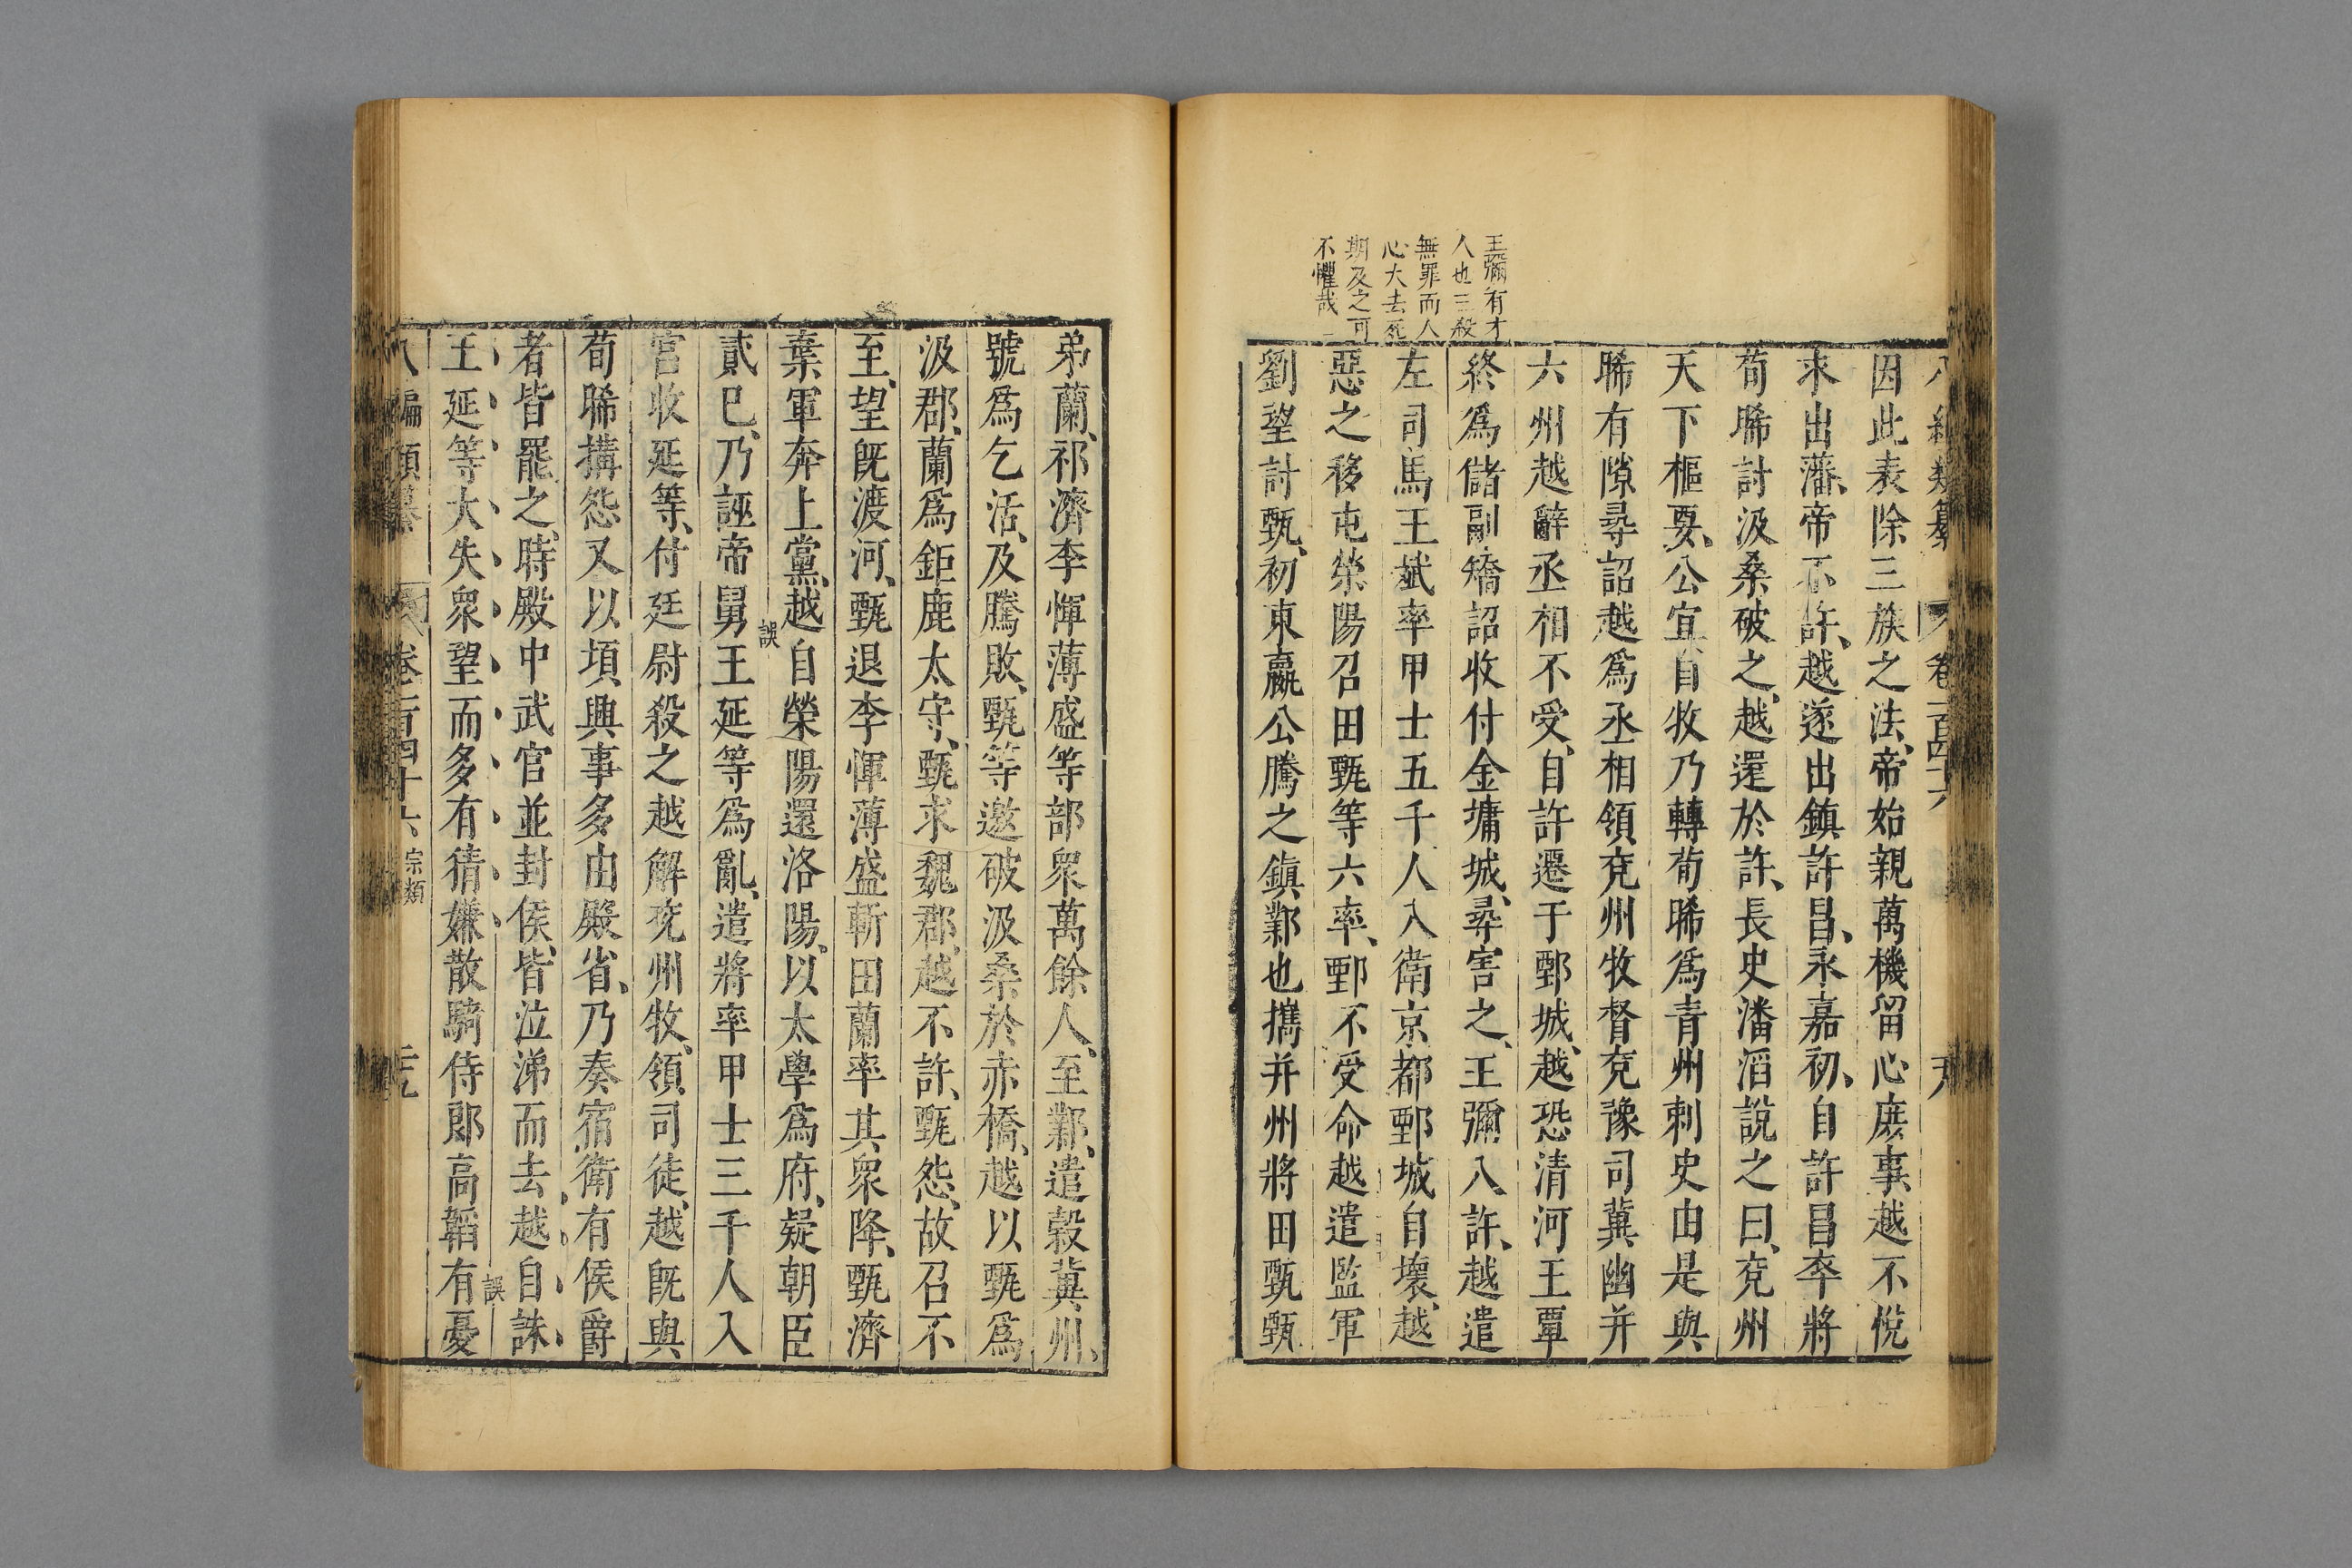 八編類纂 卷一百四十六 天
因此表除三族之法、帝始親萬機留心庶事越不悅
求出藩、帝不許、越遂出鎮許昌、永嘉初、自許昌率將
荀晞討汲桑破之、越還於許、長史潘滔說之曰、兗州
天下樞要、公宜自牧乃轉荀晞爲青州刺史由是與
晞有隙尋詔越爲丞相領兗州牧督兗豫司冀幽并
六州越辭丞相不受、自許遷于鄄城、越恐清河王覃
終爲儲副矯詔收付金墉城、尋害之、王彌入許、越遣
左司馬王斌率甲士五千人入衛京都鄄城自壞、越
惡之移屯滎陽召田甄等六率、鄄不受命越遣監軍
劉望討甄、初東嬴公騰之鎮鄴也攜并州將田甄甄
王彌有才
人也三殺
無罪而人
心大去死
期及之可
不懼哉
弟蘭、祁濟李惲薄盛等部衆萬餘人、至鄴、遣穀冀州、
號爲乞活、及騰敗、甄等邀破汲桑於赤橋、越以甄爲
汲郡、蘭爲鉅鹿太守、甄求魏郡、越不許、甄怨、故召不
至、望旣渡河、甄退李惲薄盛斬田蘭率其衆降、甄濟
棄軍奔上黨、越自滎陽還洛陽、以太學爲府、疑朝臣
貳已、乃誣帝舅王延等爲亂、遣將率甲士三千人入
誤
宮收延等、付廷尉殺之越解兗州牧、領司徒、越旣與
荀晞搆怨又以頃興事多由殿省、乃奏宿衛有侯爵
者皆罷之、時殿中武官並封侯、皆泣涕而去越自誅
王延等大失衆望而多有猜嫌散騎侍郎高韜有憂
誤
八編類纂 卷一百四十六 宗類 二十九